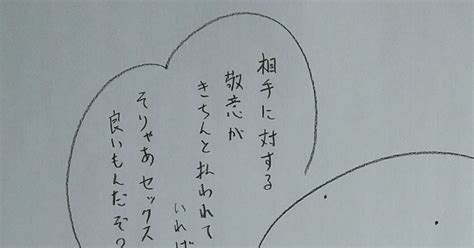 相手に対する
敬意が
きちんと払われて
いれば
そりゃあセックス
良いもんだぞ?